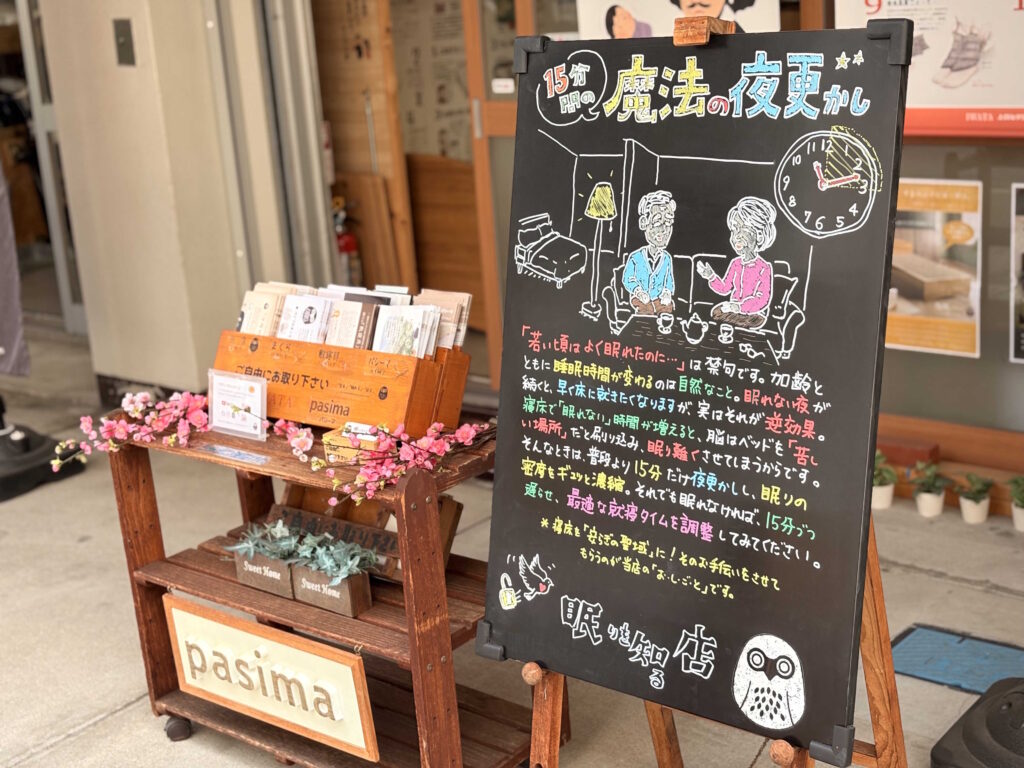 15分
間の
魔法の夜更かし
12
1
2
3
4
5
6
7
8
9
10
11
「若い頃はよく眠れたのに…」は禁句です。加齢と
ともに睡眠時間が変わるのは自然なこと。眠れない夜が
続くと、早く床に就きたくなりますが、実はそれが逆効果。
寝床で「眠れない」時間が増えると、脳はベッドを「苦し
い場所」だと刷り込み、眠り難くさせてしまうからです。
そんなときは、普段より15分だけ夜更かしし、眠りの
密度をギュッと濃縮。それでも眠れなければ、15分づつ
遅らせ、最適な就寝タイムを調整してみてください。
*寝床を「安らぎの聖域」に！そのお手伝いをさせて
もらうのが当店の「お・しごと」です。
眠りを知る店
ご自由にお取り下さい
pasima
Sweet Home
Sweet Home
pasima
9
IWATA